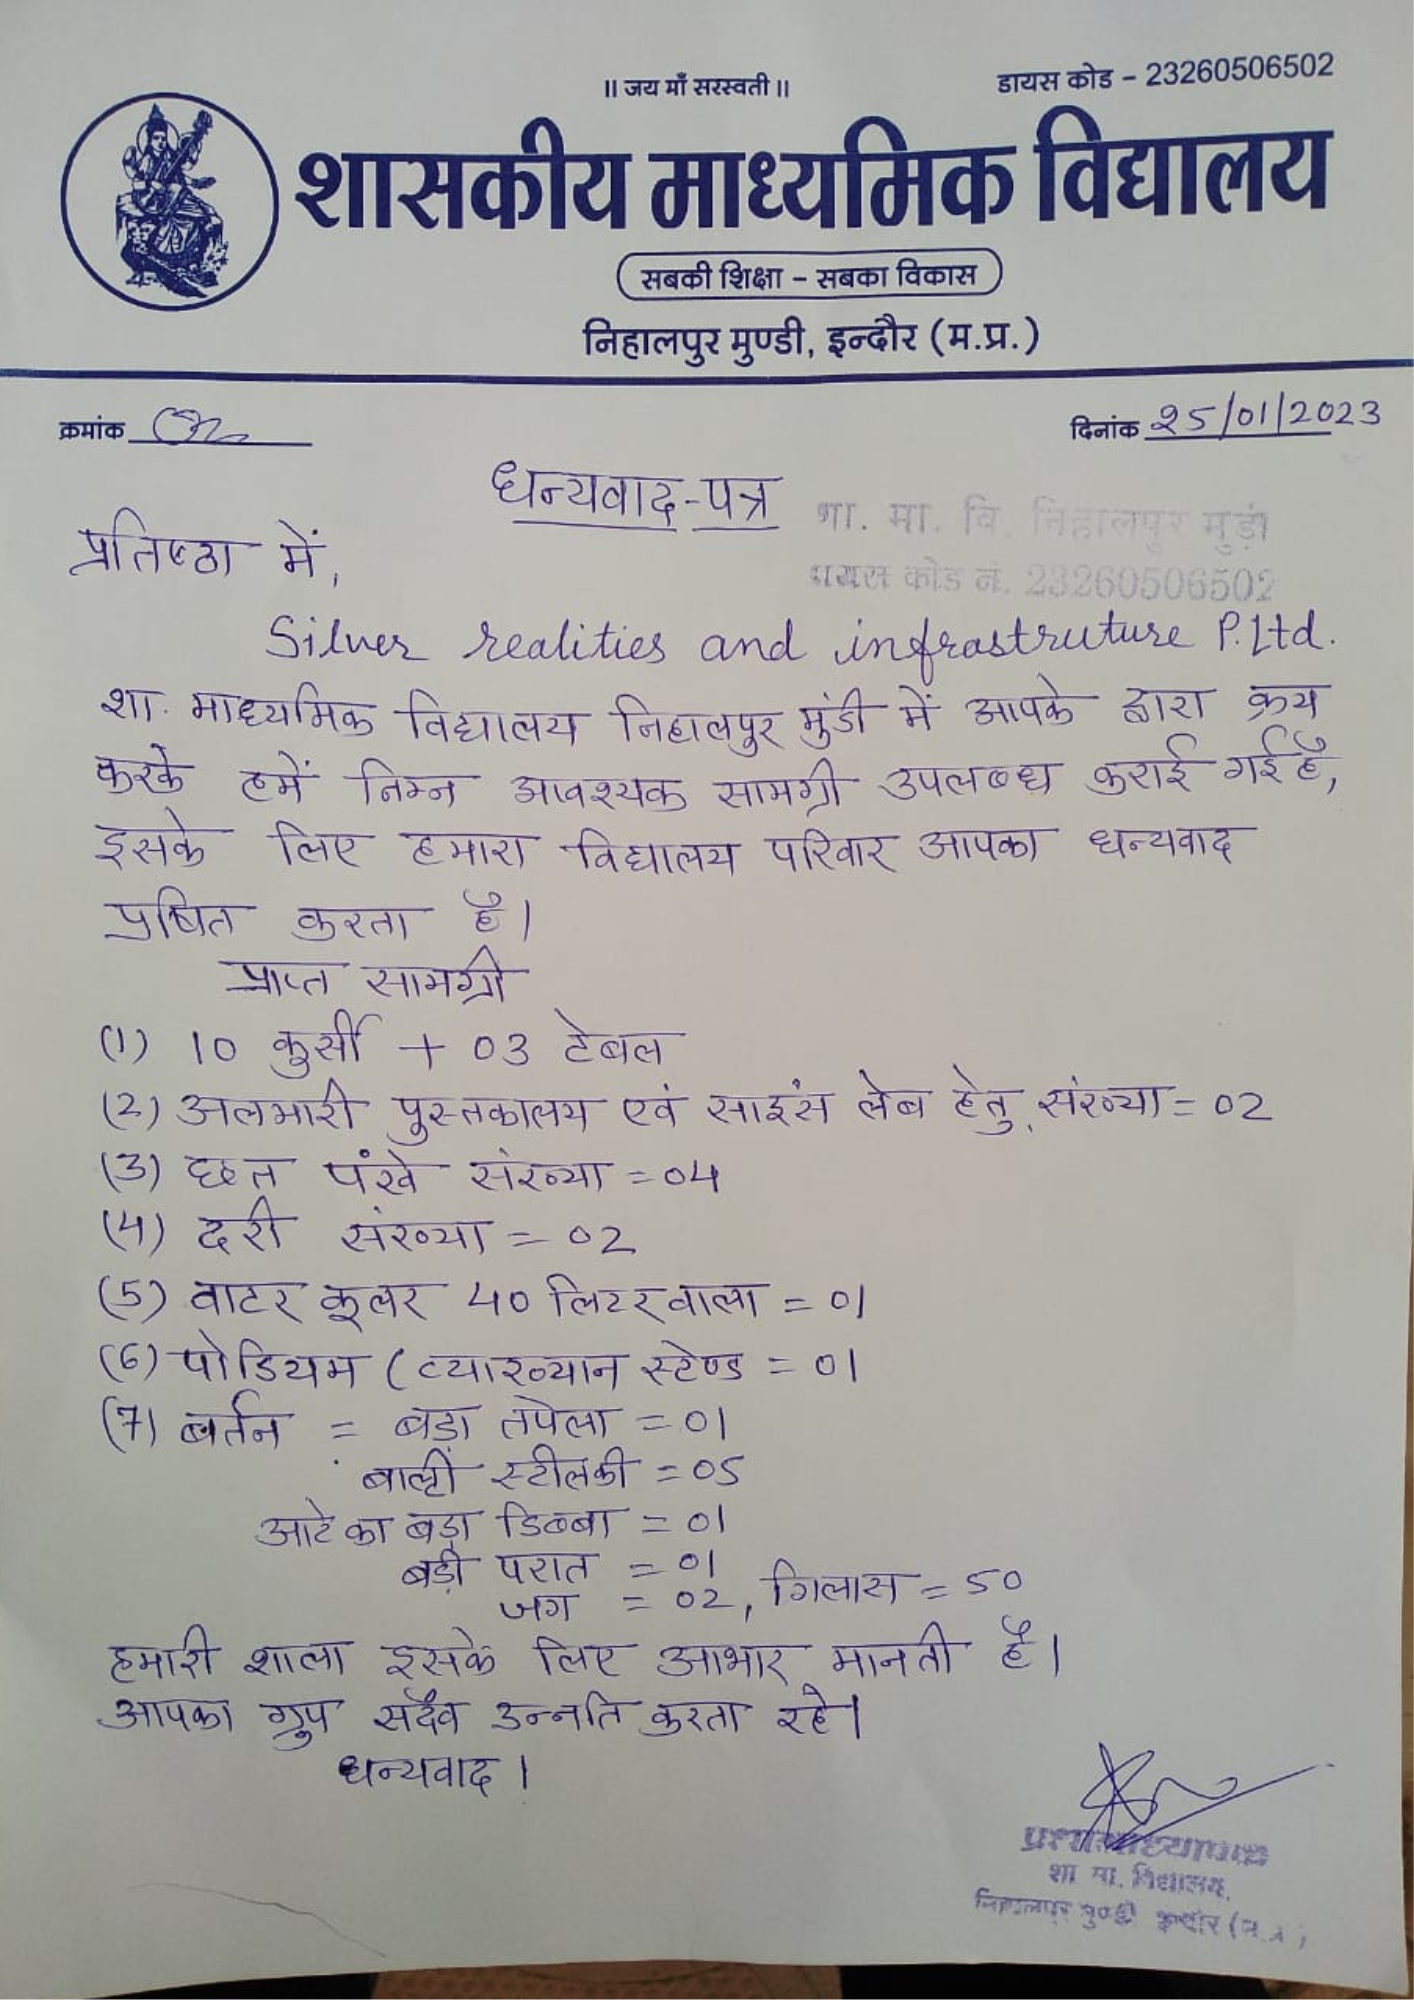 ॥ जय माँ सरस्वती ॥
डायस कोड - 23260506502
शासकीय माध्यमिक विद्यालय
सबकी शिक्षा - सबका विकास
निहालपुर मुण्डी, इन्दौर (म.प्र.)
क्रमांक
दिनांक 25/01/2023
धन्यवाद-पत्र
शा. मा. वि. निहालपुर मुड़ी
डायस कोड नं. 23260506502
प्रतिष्ठा में,
Silver realities and infrastruture P.Ltd.
शा. माध्यमिक विद्यालय निहालपुर मुंडी में आपके द्वारा क्रय
करके हमें निम्न आवश्यक सामग्री उपलब्ध कराई गई है,
इसके लिए हमारा विद्यालय परिवार आपका धन्यवाद
प्रषित करता है।
प्राप्त सामग्री
(1) 10 कुर्सी + 03 टेबल
(2) अलमारी पुस्तकालय एवं साइंस लेब हेतु संख्या = 02
(3) छत पंखे संख्या = 04
(4) दरी संख्या = 02
(5) वाटर कूलर 40 लिटरवाला = 01
(6) पोडियम (व्याख्यान स्टेण्ड = 01
(7) बर्तन = बड़ा तपेला = 01
बाल्टी स्टीलकी = 05
आटे का बड़ा डिब्बा = 01
बड़ी परात = 01
जग = 02, गिलास = 50
हमारी शाला इसके लिए आभार मानती है।
आपका ग्रुप सदैव उन्नति करता रहे।
धन्यवाद।
प्रधानाध्यापक
शा मा. विद्यालय,
निहालपुर मुण्डी इन्दौर (म.प्र.)